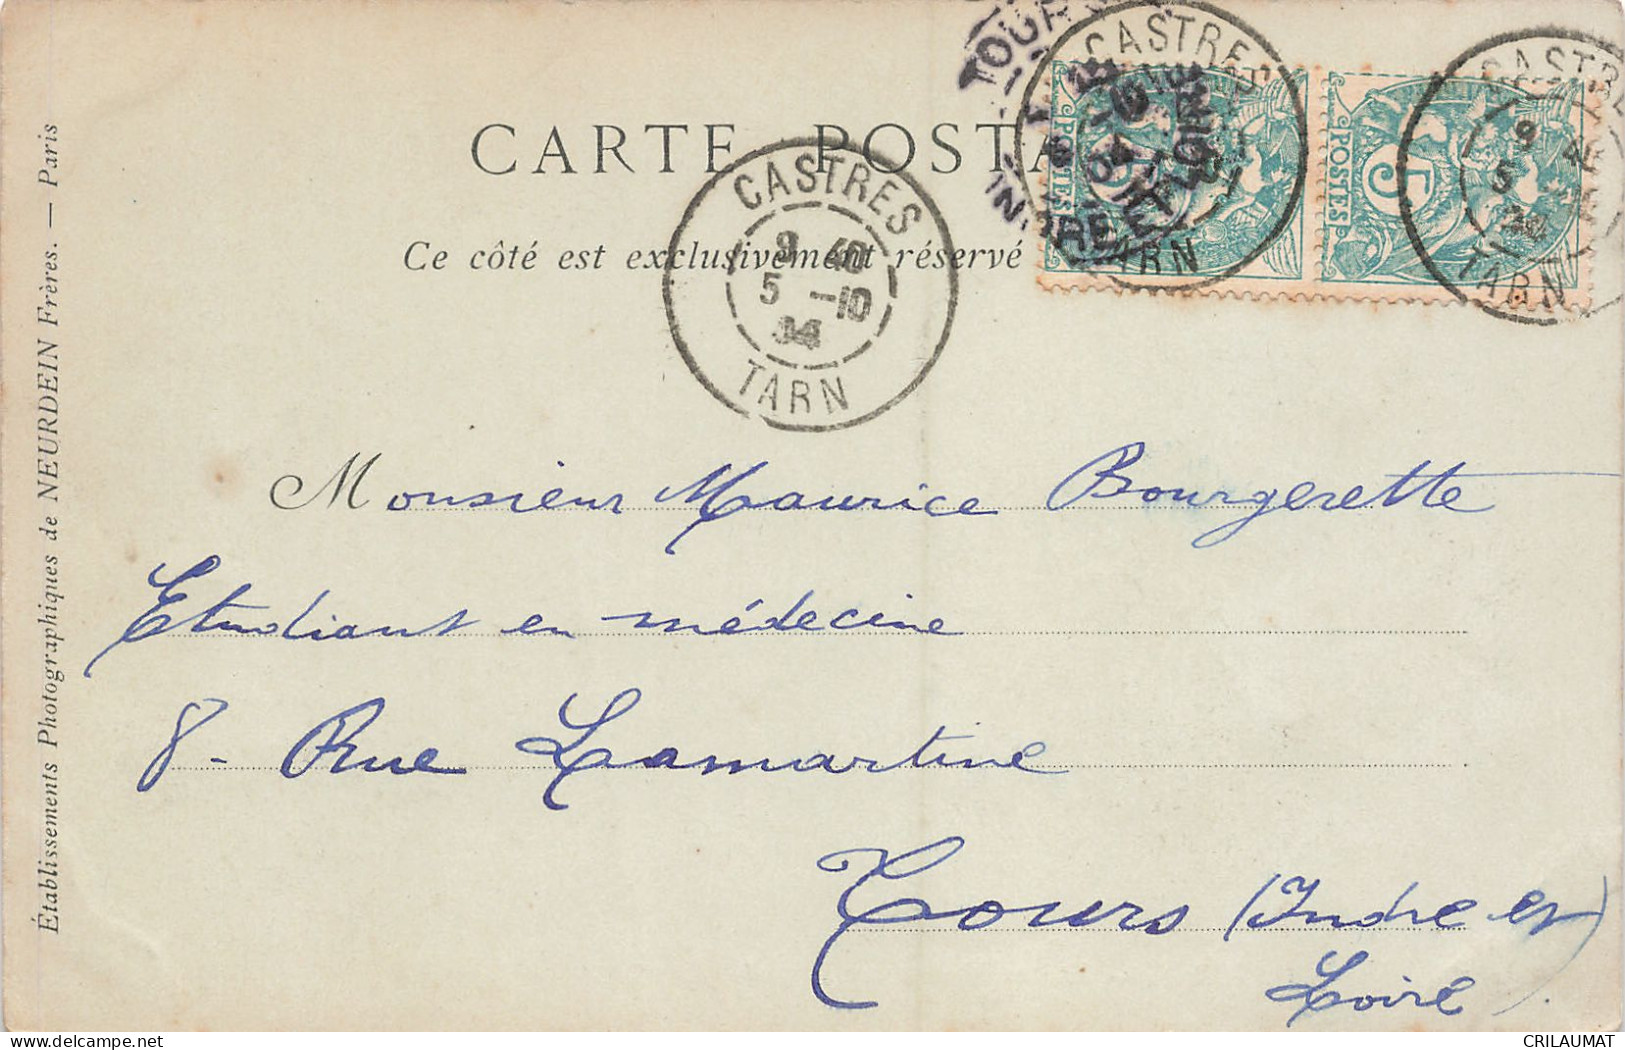 CARTE POSTA
Ce côté est exclusivement réservé
CASTRES
5 -10
04
TARN
CASTRES
TARN
TOURS
INDRE ET LOIRE
POSTES 5
POSTES 5
CASTRE
TARN
Monsieur Maurice Bourgerette
Etudiant en médecine
8 - Rue Lamartine
Tours (Indre et
Loire)
Établissements Photographiques de NEURDEIN Frères. — Paris
CRILAUMAT